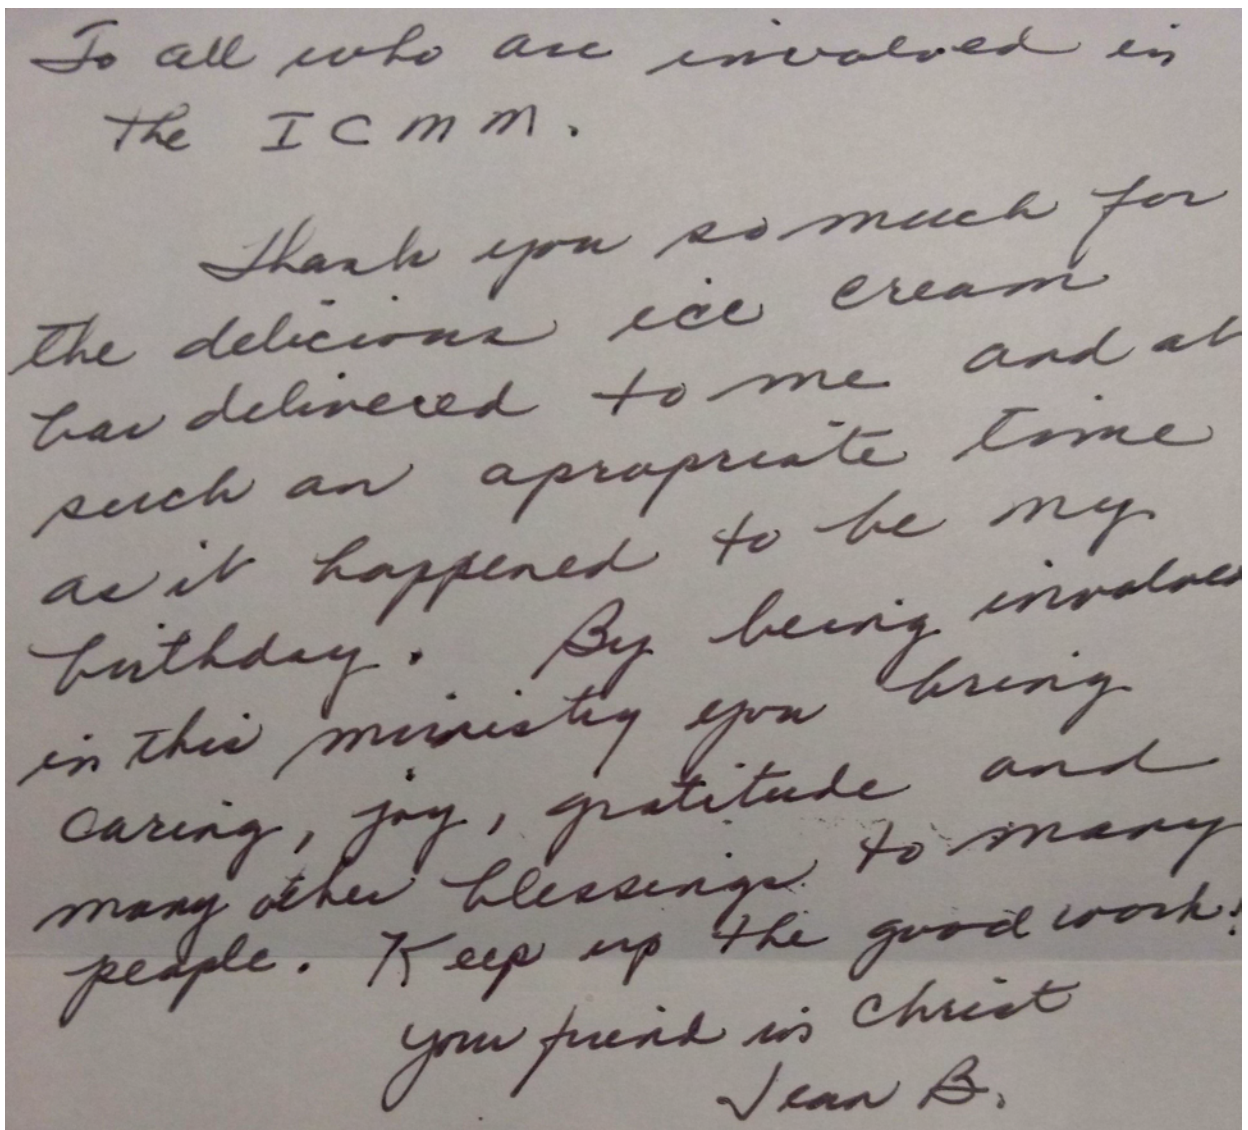 To all who are involved in
the ICMM.
Thank you so much for
the delicious ice cream
bar delivered to me and at
such an apropriate time
as it happened to be my
birthday. By being involved
in this ministry you bring
caring, joy, gratitude and
many other blessings to many
people. Keep up the good work!
your friend in Christ
Jean B.